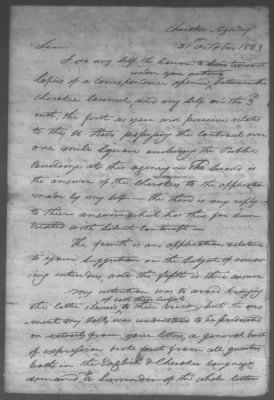 Cherokee Agency
31 October 1823
Sir
I do my self the honor to
under you
Copies of a correspondence opened, between the
Cherokee Council and my self on the 3d
inst, the first as you will perceive relates
to the U States possessing the Controul over
one mile Square including the Public
Buildings at this agency — The second is
the answer of the Cherokees to the application
made by my self — the third is my reply
to their answer which has thus far been
treated with Silent Contempt —
The fourth is an application relative
to your Suggestion on the Subject of remov-
ing intruders and the fifth is their answer
my intention was to avoid bringing
of both these subjects
the letter to their view, but the mo-
ment my talk was to be predicated
on extracts from your letter, a general burst
of expression broke forth from all quarters
both in the English & Cherokee language
demand a Surrender of the whole letter